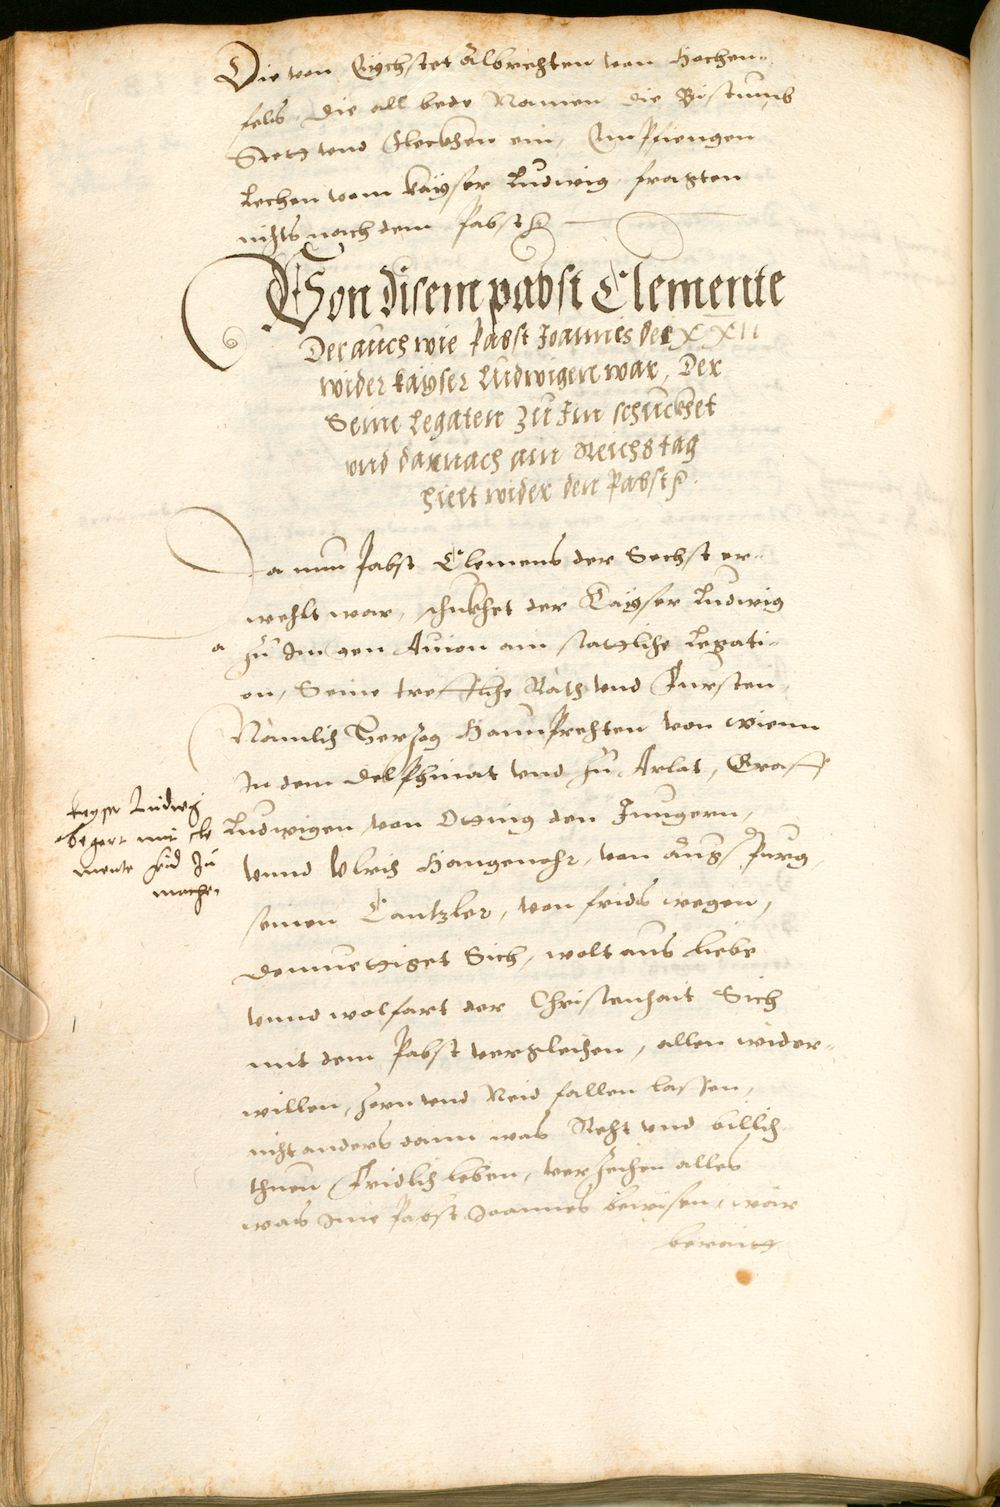 Die von Aÿchstet Albrechten von Hochen=
fels, Die all bede Namen die Bistumb
Stett vnd Fleckhen ein, Empfiengen
Lechen vom Kaÿser Ludwig, fragten
nichts nach dem Pabst
Von disem pabst Clemente
Der auch wie Pabst Joannis der XXII
wider Kaÿser Ludwigen war, Der
Seine Legaten zu Im schückhet
vnd darnach ain Reichstag
hielt wider den Pabst
Da nun Pabst Clemens der Sechst er=
wehlt war, schickhet der Kaÿser Ludwig
a zu Im gen Auion ain statliche Legati=
on, Seine treffliche Räth vnd Fürsten,
Nämlich Herzog Haunprechten von Wienn
In dem Delphinat vnd zu Arlat, Graff
Ludwigen von Otting den Jungern,
vnnd Vlrich Hangenohr, von Augspurg,
seinen Cantzler, von frids wegen,
Demuettiget Sich, wolt aus Liebe
vnnd wolfart der Christenhait Sich
mit dem Pabst vergleichen, allen wider=
willen, zorn vnd Neid fallen lassen,
nicht anders dann was Recht vnd billich
thuen, Fridlich leben, verzeihen alles
was Ime Pabst Joannes bewisen, wär
beraitt
keyser Ludwig
begert mit Cle
mente frid zu
machen